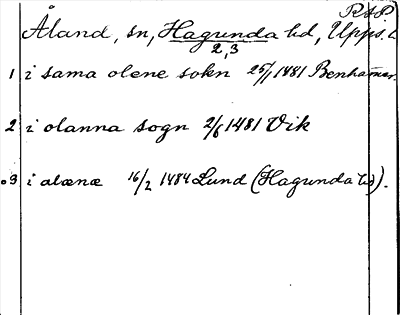 RAP
Åland, sn, Hagunda hd, Upps. l.
2, 3
1 i sama olene sokn 25/1 1481 Benhamar.
2 i olanna sogn 2/6 1481 Vik
3 i alænæ 16/2 1484 Lund (Hagunda hd).